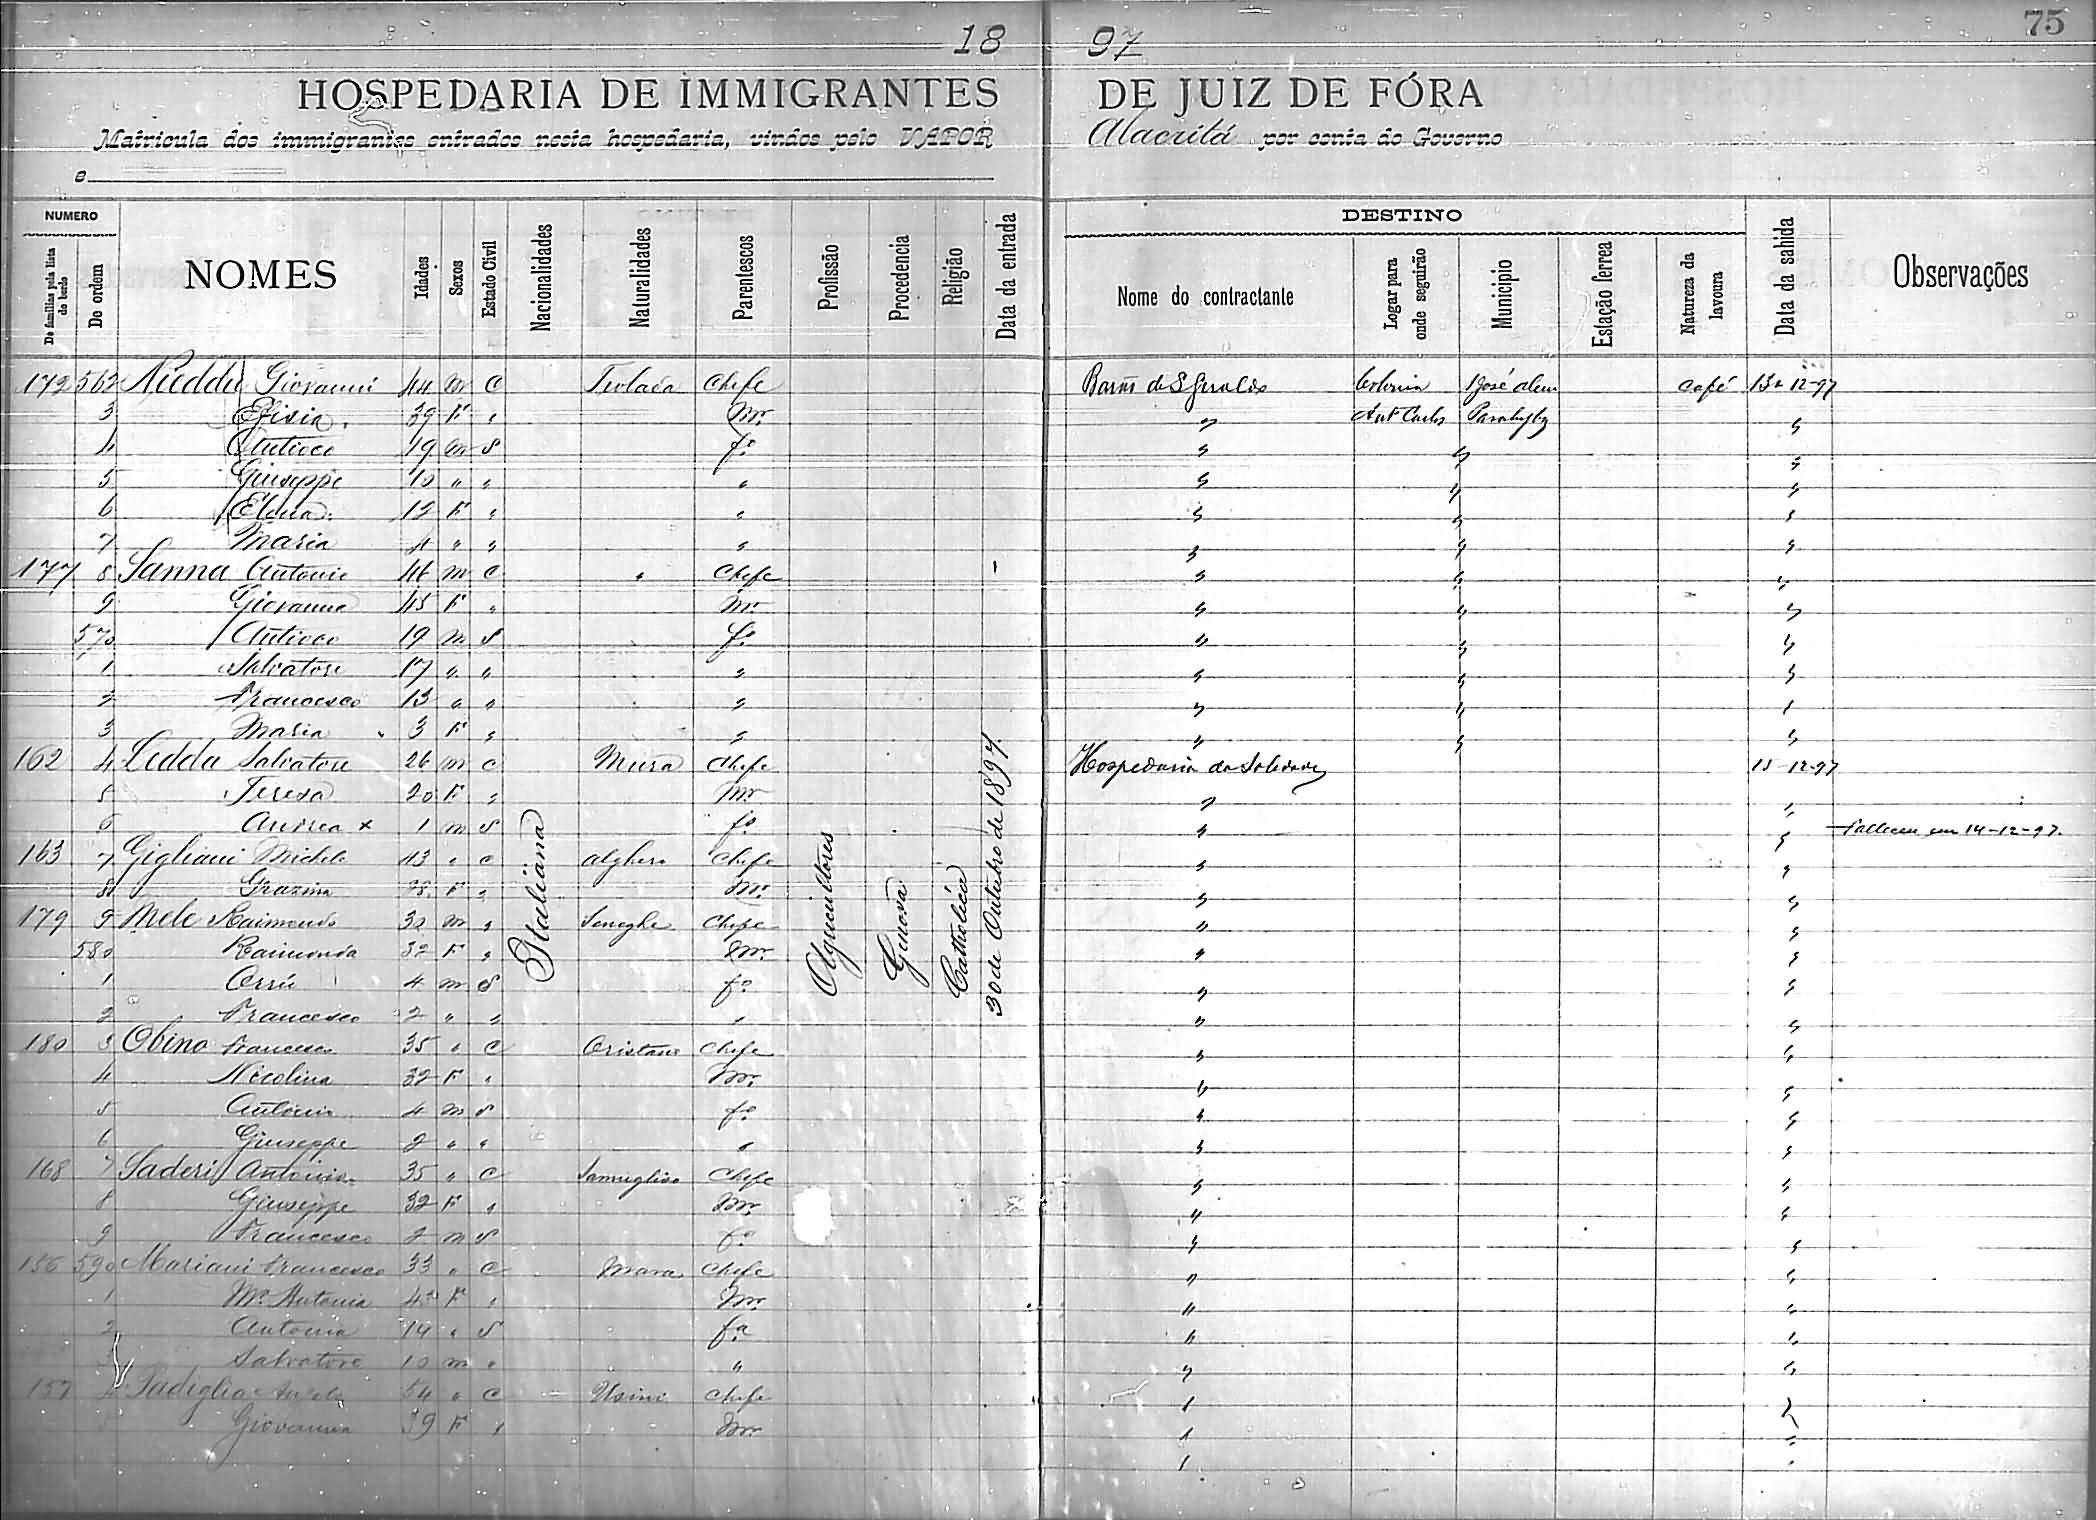 75
18 97
HOSPEDARIA DE IMMIGRANTES DE JUIZ DE FÓRA
Matricula dos immigrantes entrados nesta hospedaria, vindos pelo VAPOR Alacritá por conta do Governo
e
NUMERO DESTINO
De familias pela lista de bordo De ordem NOMES Idades Sexos Estado Civil Nacionalidades Naturalidades Parentescos Profissão Procedencia Religião Data da entrada Nome do contractante Logar para onde seguirão Municipio Estação ferrea Natureza da lavoura Data da sahida Observações
172 562 Nieddu Giovanni 44 m C Teulada Chefe Barão de S Geraldo Colonia S José alem café 13-12-97
3 Efisia 39 F " Mr. " Ant Carlos Parahyba "
4 Antioco 19 m S fo. " " "
5 Giuseppe 10 " " " " " "
6 Elena 12 F " " " " "
7 Maria 4 " " " " " "
177 8 Sanna Antonio 46 m C " Chefe " " "
9 Giovanna 45 F " Mr " " "
570 Antioco 19 m S fo. " " "
1 Salvatore 17 " " " " " "
2 Francesco 13 " " " " " "
3 Maria 3 F " " " " "
162 4 Ledda Salvatore 26 m C Chefe Hospedaria da Soledade 15-12-97
5 Teresa 20 F " Mr " "
6 Andrea x 1 m S fo " " Falleceu em 14-12-97.
163 7 Gigliani Michele 43 " C Alghero Chefe " "
8 Grazina F " Mr. " "
179 9 Mele Raimondo 30 m " Seneghe Chefe " "
580 Raimonda 32 F " Mr. " "
1 Orrú 4 m S fo " "
2 Francesco 2 " " " " "
180 3 Obino Francesco 35 " C Oristano Chefe " "
4 Nicolina 32 F " Mr. " "
5 Antonio 4 m S fo " "
6 Giuseppe 2 " " " " "
168 7 Saderi Antonio 35 " C Samugheo Chefe " "
8 Giuseppe 32 F " Mr. " "
9 Francesco 2 m S fo " "
156 590 Mariani Francesco 33 " C Mara Chefe " "
1 Ma. Antonia F " Mr. " "
2 Antonia 14 " S fa " "
3 Salvatore 10 m " " " "
157 4 Sadiglia Angelo 54 " C Usini Chefe " "
5 Giovanna 39 F " Mr. " "
" "
Italiana
Agricultores
Genova
Catholica
30 de Outubro de 1897.